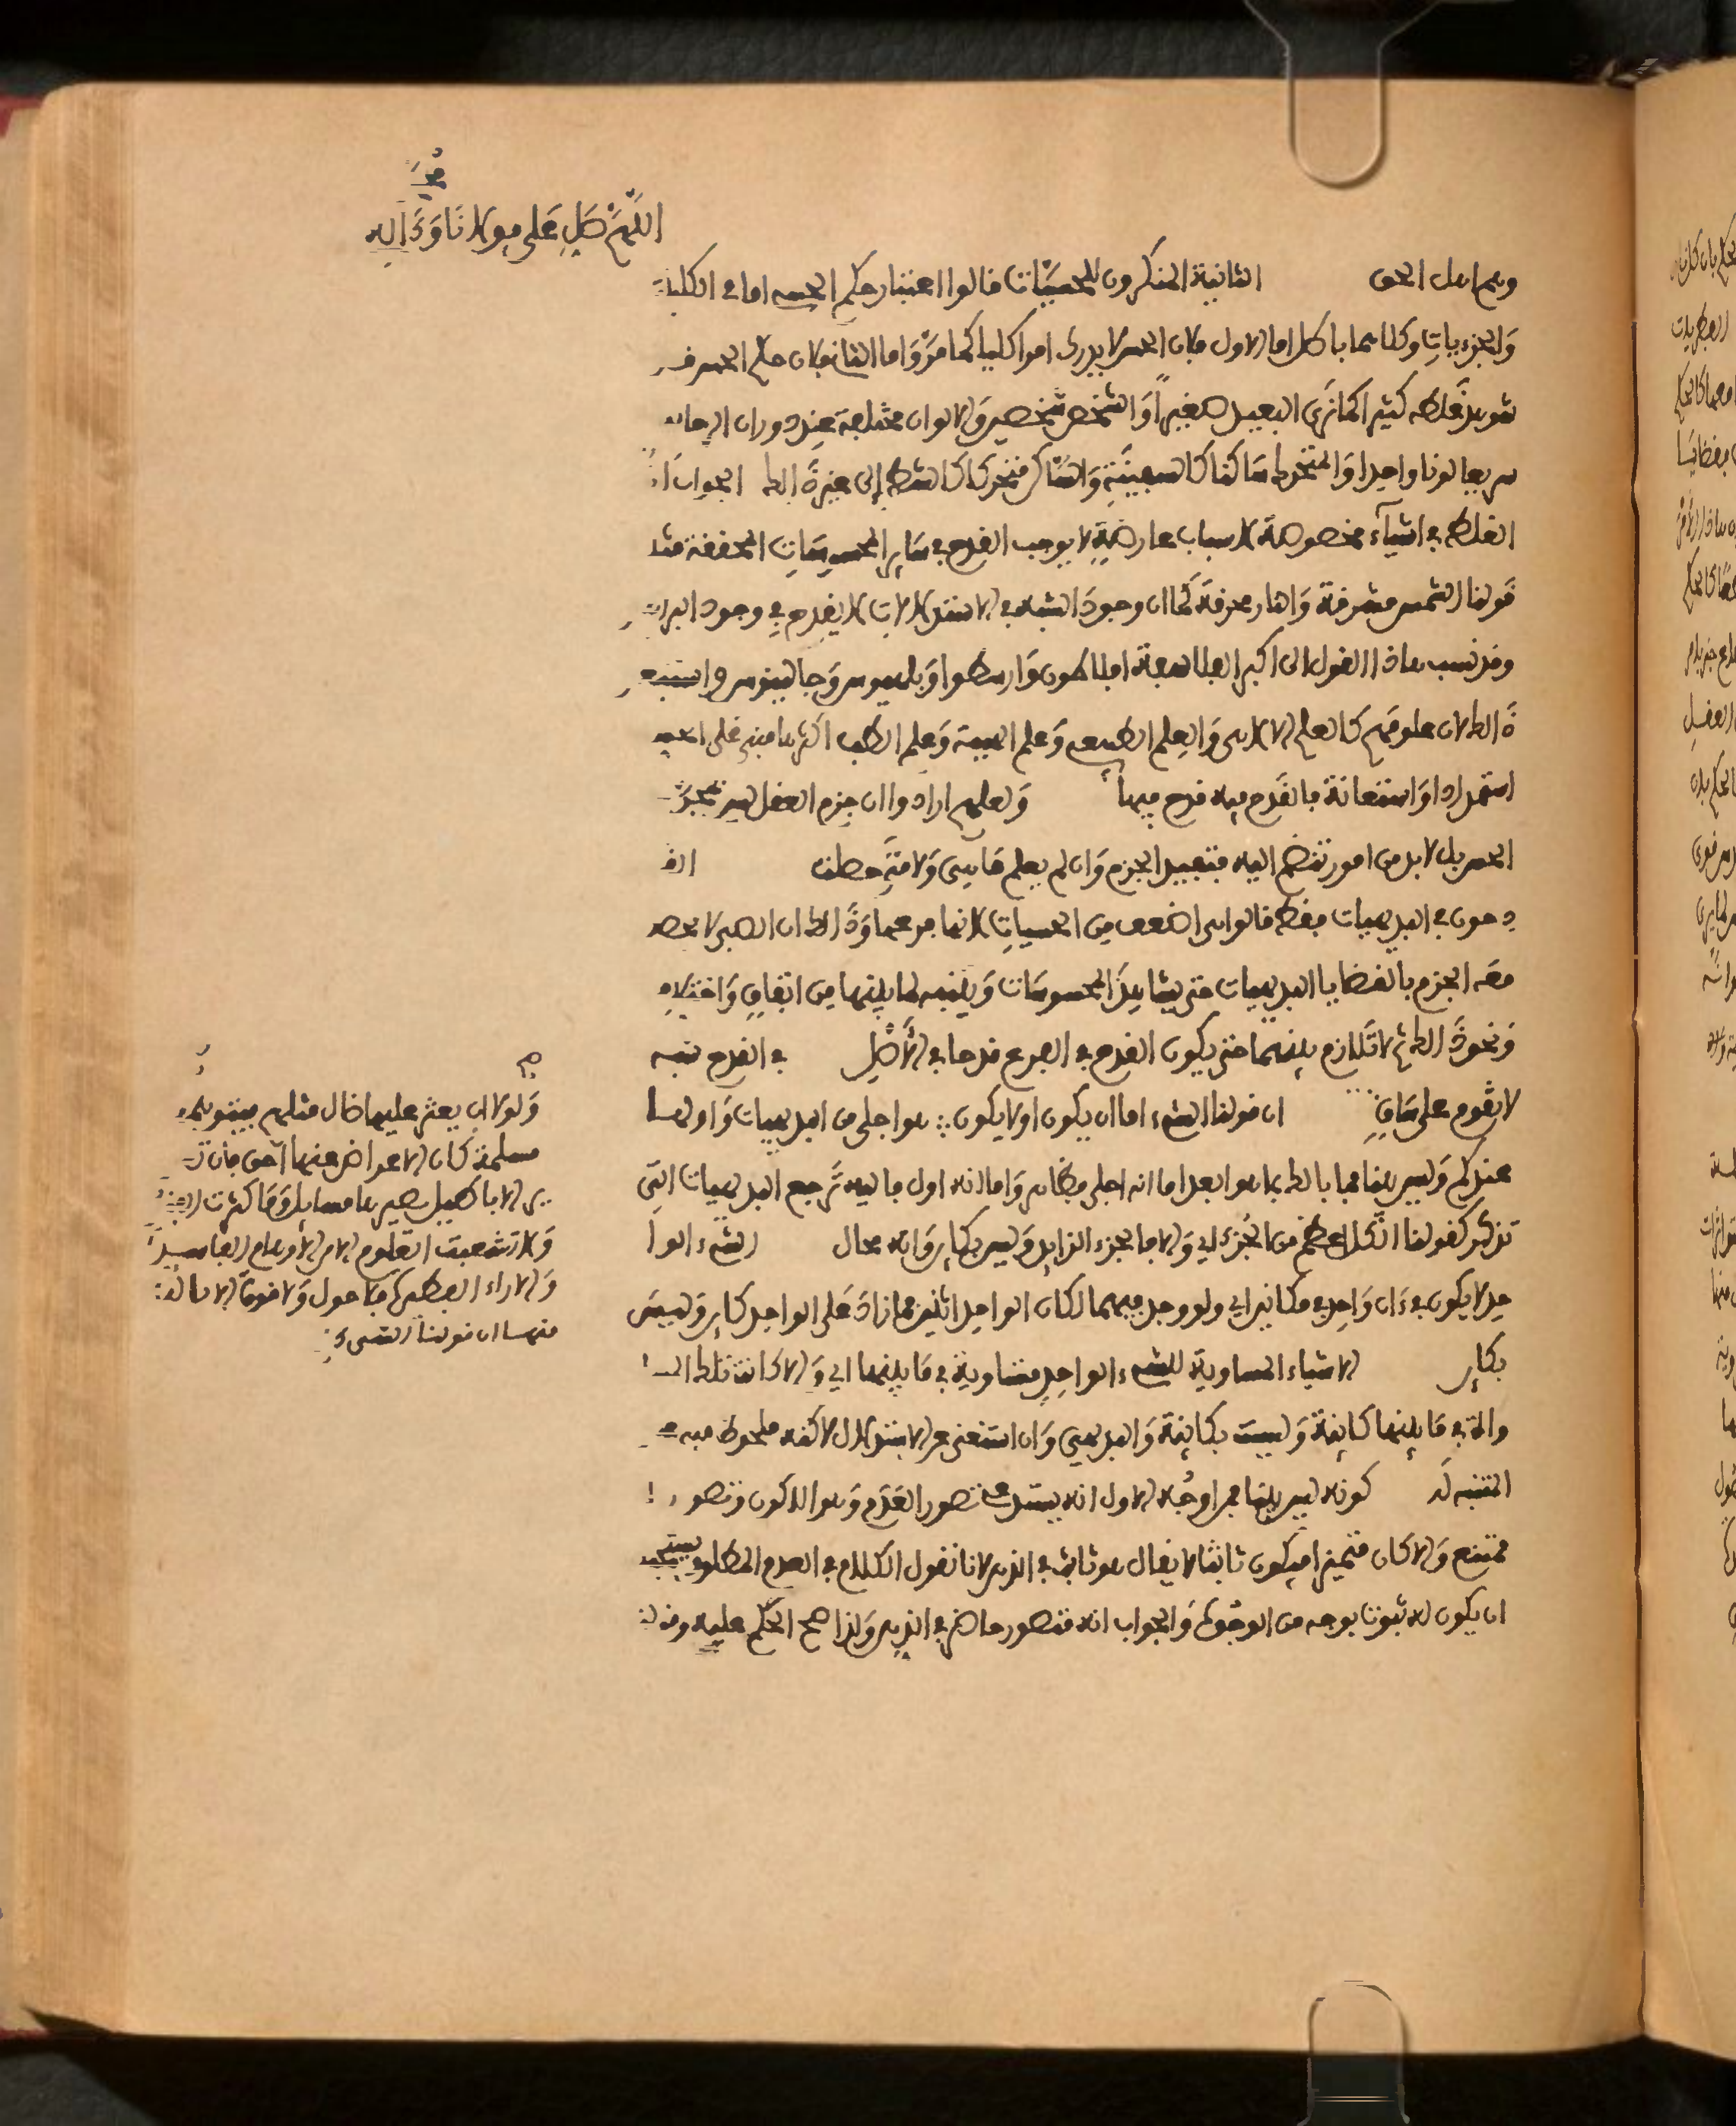 اللهم صل على مولانا وءاله
وهم اهل الحق الثانية المنكرون للحسيات قالوا اعتبار حكم الحس اما في الكليات
والجزءيات وكلاهما باطل اما الاول فلان الحس لا يدرك امرا كليا كما مر واما الثاني فلان حكم الحس في
غلطه كثيرا كما نرى البعيد صغيرا والشخص شخصين والالوان مختلفة عند دوران الرحا
سريعا لونا واحدا والمتحرك ساكنا كالسفينة والساكن متحركا كالشط إلى غير ذالك الجواب ان
الغلط في اشياء مخصوصة لاسباب عارضة لا يوجب القدح في ساير المحسوسات المحققة مثل
قولنا الشمس مشرقة والنار محرقة كما ان وجود الشبه في الاستدلالات لا يقدح في وجود
وقد نسب هاذا القول الى اكبر الفلاسفة افلاطون وارسطوا وبطليموس وجالينوس
ذالك لان علومهم كالعلم الالاهي والعلم الطبيعي وعلم الهيئة وعلم الطب اكثرها مبني على الحس
استمدادا واستعانة فالقدح فيه قدح فيها ولعلهم ارادوا ان جزم العقل ليس بمجرد
الحس بل لابد من امور تنضم اليه فتفيد الجزم وان لم يعلم ما هي ولا متى حصلت
دحون في البديهيات فقط قالوا هي اضعف من الحسيات لانها فرعها وذالك ان الصبي لا يحصل
معه الجزم بالقضايا البديهيات حتى يشاهد المحسوسات ويتنبه لما بينها من اتفاق واختلاف
ونحو ذالك ثم لا تلازم بينهما حتى يكون القدح في الفرع قدحا في الأصل في القدح
لا يقوم على ساق ان قولنا الشيء اما ان يكون او لا يكون هو اجلى من البديهيات واولها
عندكم وليس يقينيا بالك بما هو ابعد اما انه اجلى فظاهر واما انه اول فاليه ترجع البديهيات التي
تذكر كقولنا الكل اعظم من الجزء اي والا فالجزء الزايد وليس بكاين وانه محال الشيء الوا
حد لا يكون في ءان واحد في مكانين اي ولو وجد فيهما لكان الواحد اثنين فما زاد على الواحد كاين وليس
بكاين الاشياء المساوية للشيء الواحد متساوية في ما بينها اي والا كانت تلك
في ما بينها كاينة وليست بكاينة والبديهي وان استغنى عن الاستدلال لاكنه ملحوظ فيه
المتنبه له كونه ليس يقينيا فمن اوجه الاول انه يستدعي تصور العدم وهو اللاكون وتصور
ممتنع والا كان متميزا فيكون ثابتا لا يقال هو ثابت في الذهن لانا نقول الكلام في العدم المطلق
ان يكون له ثبوت بوجه من الوجوه والجواب انه متصور حاضر في الذهن ولذا صح الحكم عليه
ولولا ان يعثر عليها ضال مثلهم
مسلمة كان الاعراض عنها احق فان
الاباطيل تصير مسايل وما كثرت
ولا تشعبت العلوم الا من الاوهام الفاسدة
والاراء فلا حول ولا قوة الا بالله
منها ان قولنا الشيء